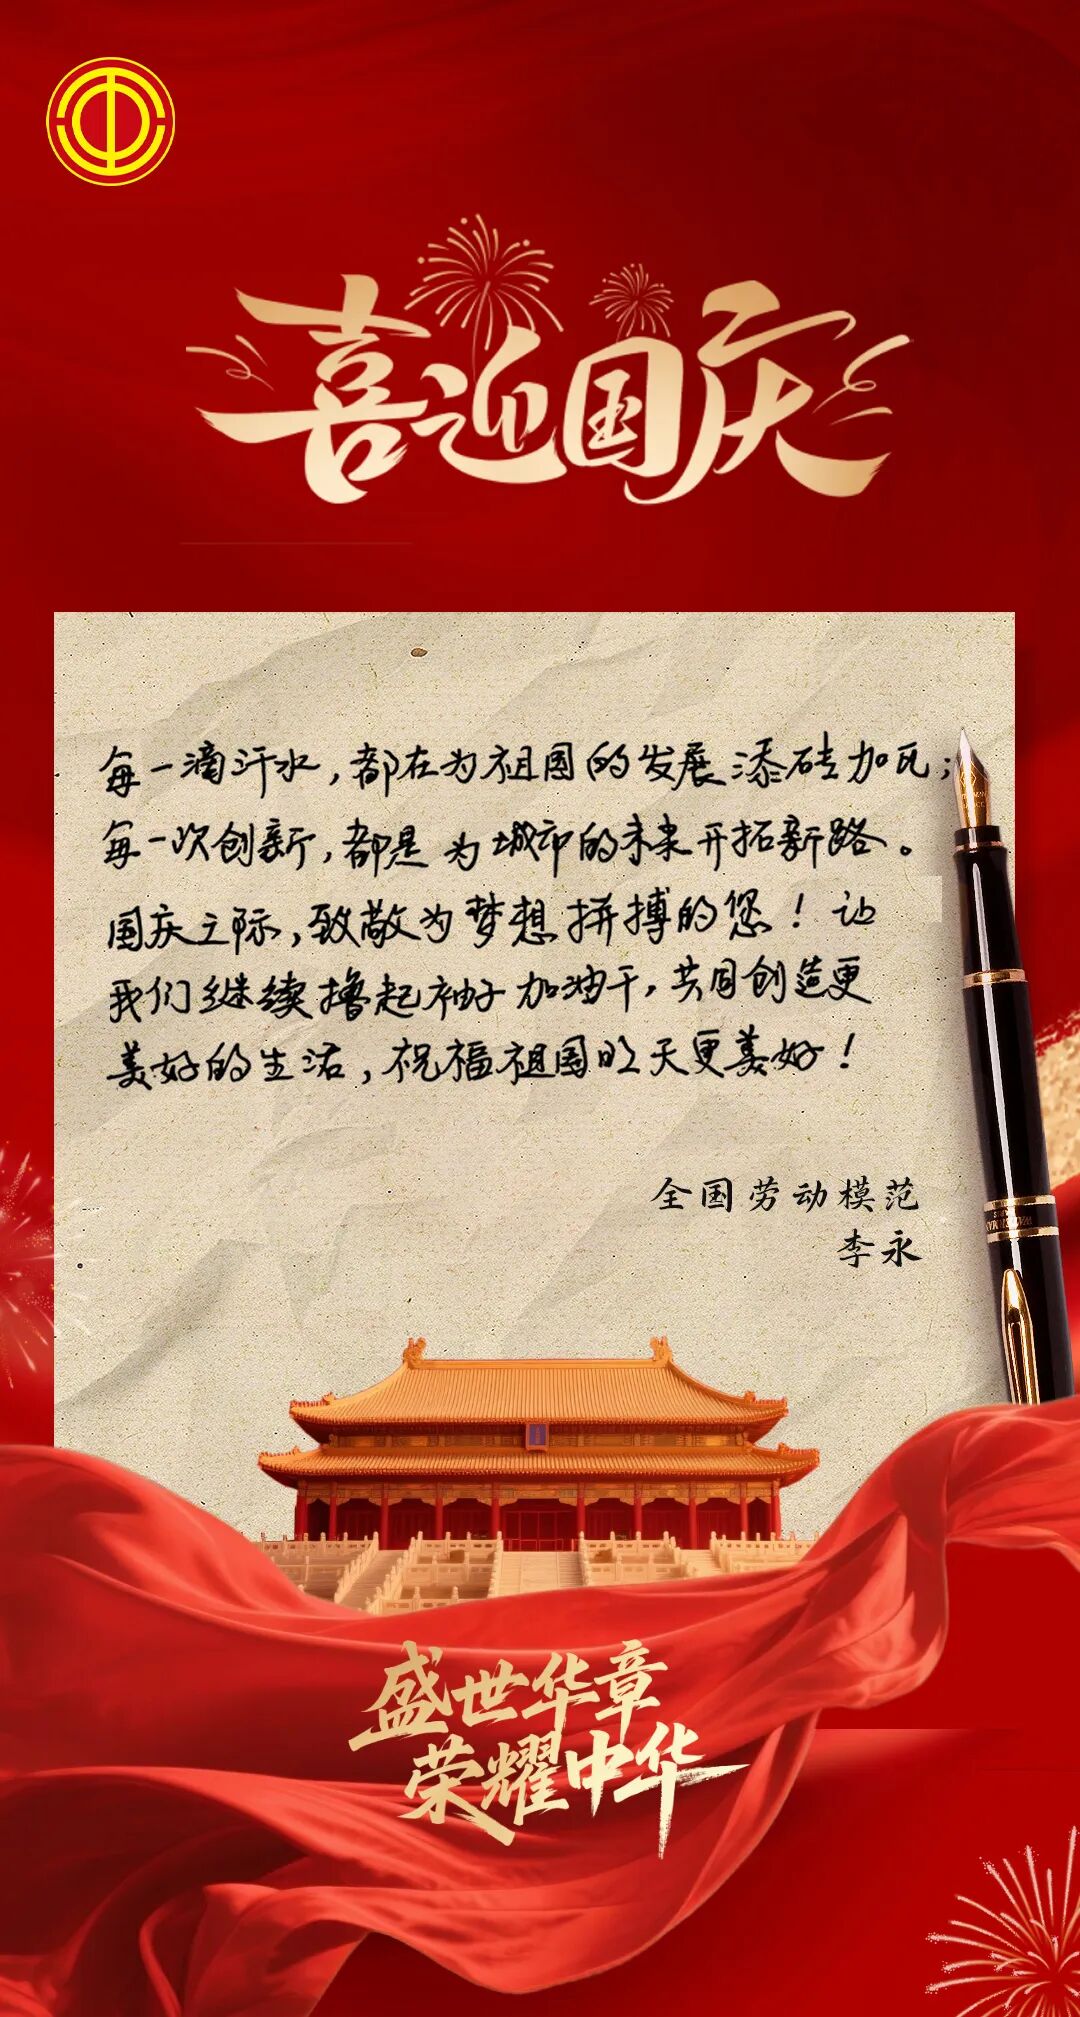 喜迎国庆
每一滴汗水，都在为祖国的发展添砖加瓦；
每一次创新，都是为城市的未来开拓新路。
国庆之际，致敬为梦想拼搏的您！让
我们继续撸起袖子加油干，共同创造更
美好的生活，祝福祖国明天更美好！
全国劳动模范
李永
盛世华章
荣耀中华